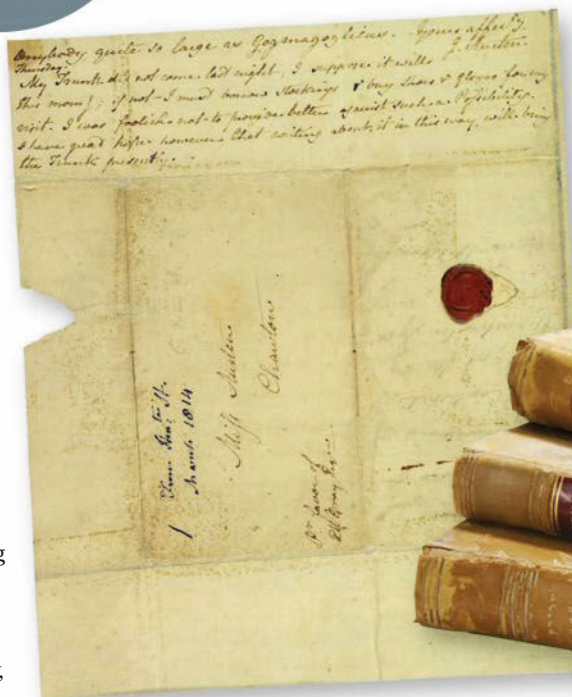 anybody quite so large as Gogmagoglicus. Yours affec:ly
J. Austen
Thursday
My Trunk did not come last night, I suppose it will
this morng; if not I must borrow Stockings & buy Shoes & Gloves for my
visit. I was foolish not to provide better against such a Possibility.
I have great hope however that writing about it in this way, will bring
the Trunk presently.
Miss Austen
Chawton
March 1814
favor of
g